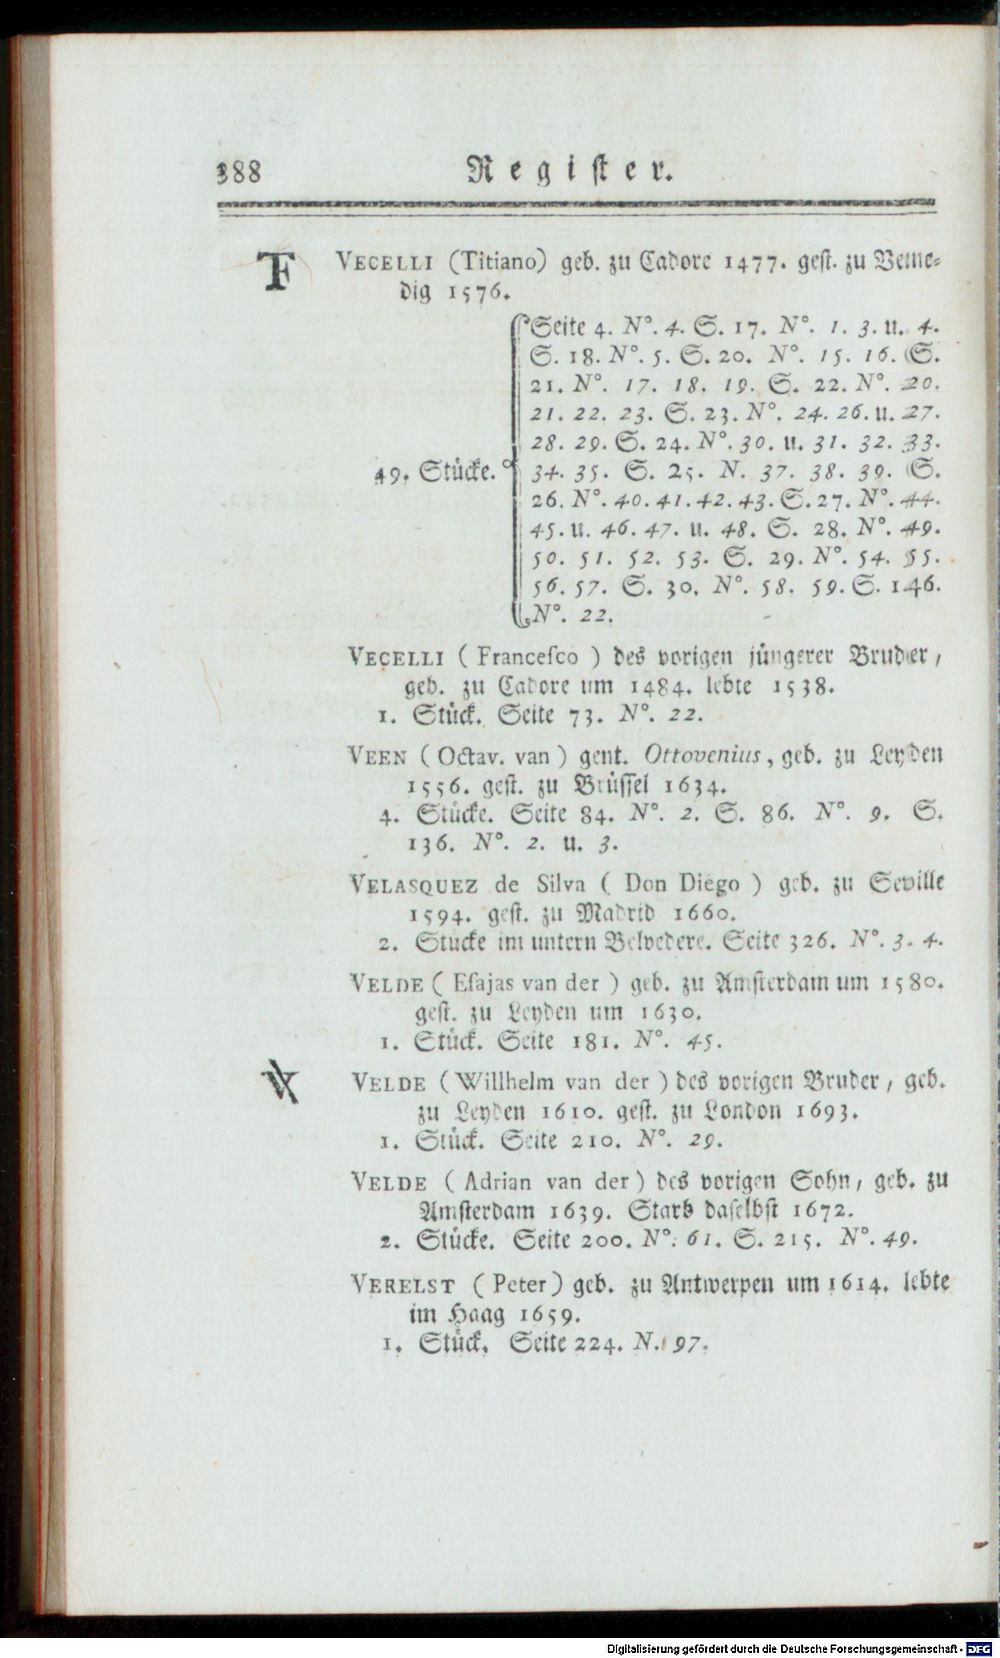 388 Register.
VECELLI (Titiano) geb. zu Cadore 1477. gest. zu Vene-
dig 1576.
Seite 4. N°. 4. S. 17. N°. 1. 3. u. 4.
S. 18. N°. 5. S. 20. N°. 15. 16. S.
21. N°. 17. 18. 19. S. 22. N°. 20.
21. 22. 23. S. 23. N°. 24. 26. u. 27.
28. 29. S. 24. N°. 30. u. 31. 32. 33.
49. Stücke. 34. 35. S. 25. N. 37. 38. 39. S.
26. N°. 40. 41. 42. 43. S. 27. N°. 44.
45. u. 46. 47. u. 48. S. 28. N°. 49.
50. 51. 52. 53. S. 29. N°. 54. 55.
56. 57. S. 30. N°. 58. 59. S. 146.
N°. 22.
VECELLI (Francesco) des vorigen jüngerer Bruder,
geb. zu Cadore um 1484. lebte 1538.
1. Stück. Seite 73. N°. 22.
VEEN (Octav. van) gent. Ottovenius, geb. zu Leyden
1556. gest. zu Brüssel 1634.
4. Stücke. Seite 84. N°. 2. S. 86. N°. 9. S.
136. N°. 2. u. 3.
VELASQUEZ de Silva (Don Diego) geb. zu Seville
1594. gest. zu Madrid 1660.
2. Stucke im untern Belvedere. Seite 326. N°. 3. 4.
VELDE (Esajas van der) geb. zu Amsterdam um 1580.
gest. zu Leyden um 1630.
1. Stück. Seite 181. N°. 45.
VELDE (Willhelm van der) des vorigen Bruder, geb.
zu Leyden 1610. gest. zu London 1693.
1. Stück. Seite 210. N°. 29.
VELDE (Adrian van der) des vorigen Sohn, geb. zu
Amsterdam 1639. Starb daselbst 1672.
2. Stücke. Seite 200. N°. 61. S. 215. N°. 49.
VERELST (Peter) geb. zu Antwerpen um 1614. lebte
im Haag 1659.
1. Stück. Seite 224. N. 97.
Digitalisierung gefördert durch die Deutsche Forschungsgemeinschaft - DFG